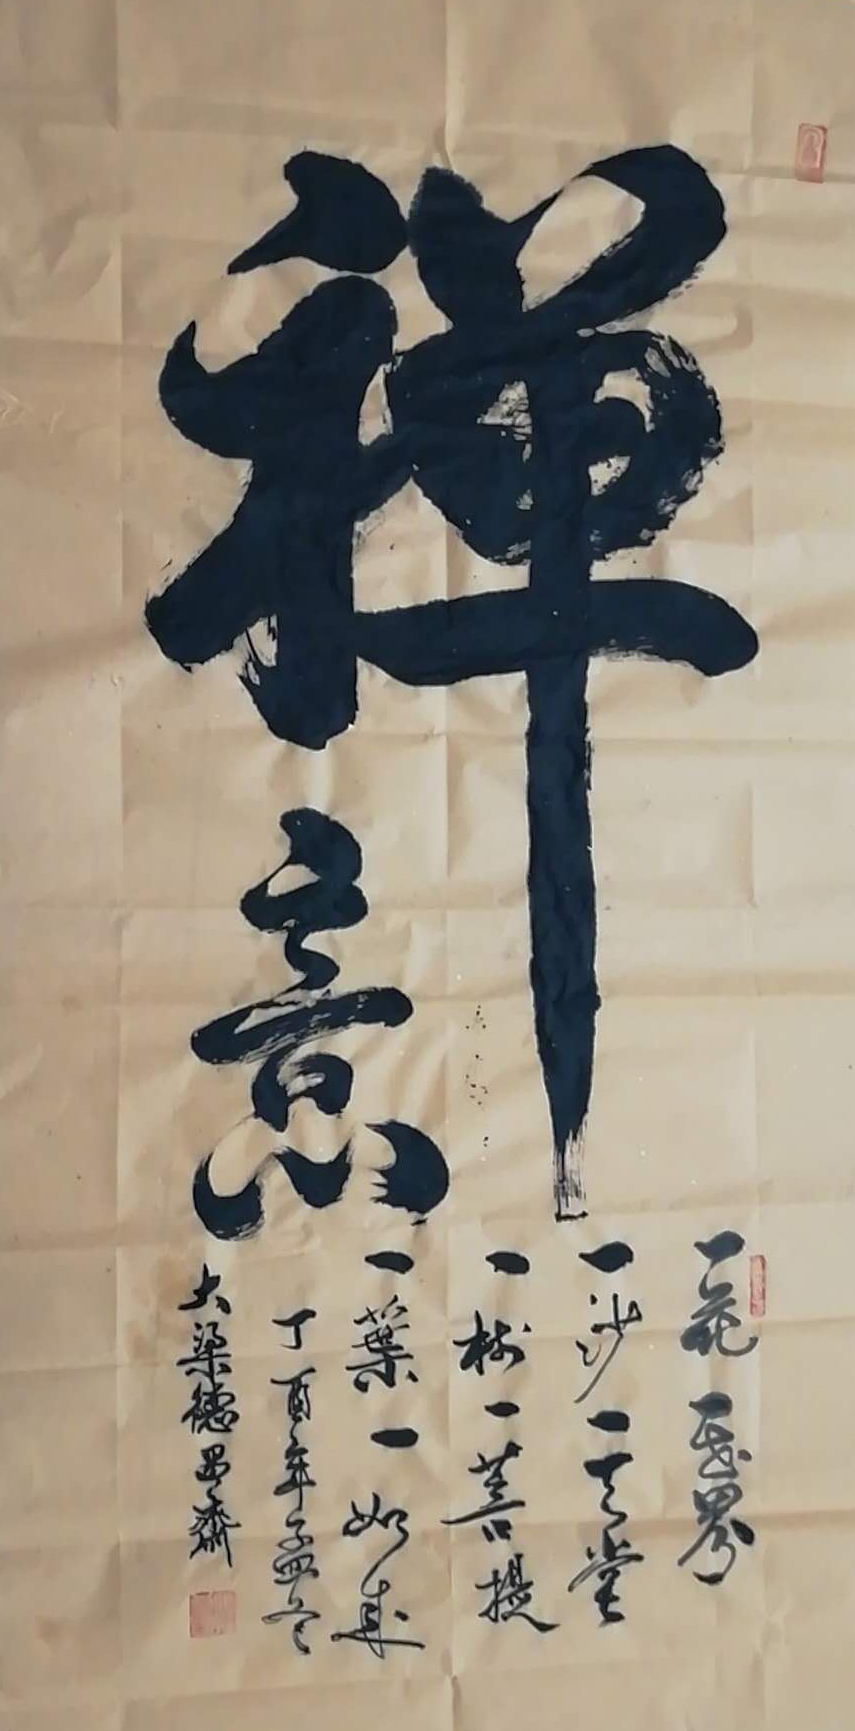 禪意
一花一世界
一沙一天堂
一樹一菩提
一葉一如來
丁酉年孟冬
大梁德昌齋